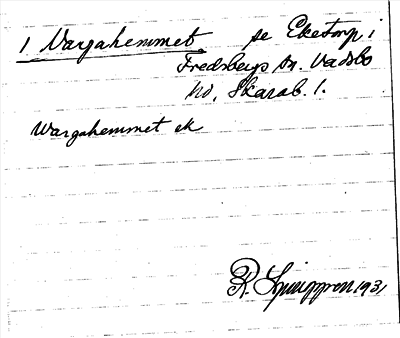 1 Vargahemmet se Eketorp i
Fredsbergs sn. Vadsbo
hd, Skarab. l.
Wargahemmet ek
R. Ljunggren 1931